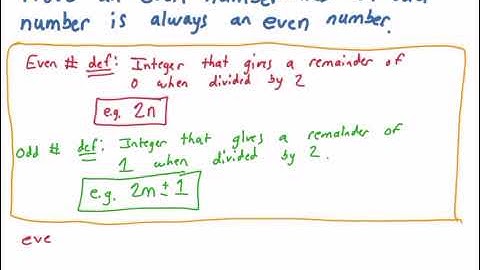 number is always an even number.
Even # def: Integer that gives a remainder of
0 when divided by 2
e.g. 2n
Odd # def: Integer that gives a remainder of
1 when divided by 2.
e.g. 2m ± 1
eve